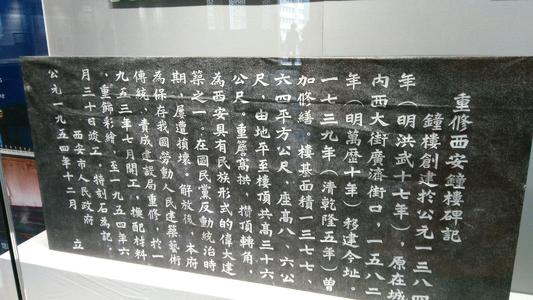 重修西安鐘樓碑記
鐘樓創建於公元一三八四
年（明洪武十七年），原在城
內西大街廣濟街口，一五八二
年（明萬歷十年）移建今址。
一七三九年（清乾隆五年）曾
加修繕。樓基面積一三七七、
六四平方公尺，座高八、六公
尺，由地平至樓頂共高三十六
公尺。重簷高拱，攢頂轉角，
為西安具有民族形式的偉大建
築之一。在國民黨反動統治時
期，屢遭損壞。解放後，本府
為保存我國勞動人民建築藝術
傳統，責成建設局重修，於一
九五三年七月開工，樵配材料
，重飾彩繪，至一九五四年六
月三十日竣工，特刻石為記。
西安市人民政府 立
公元一九五四年十二月